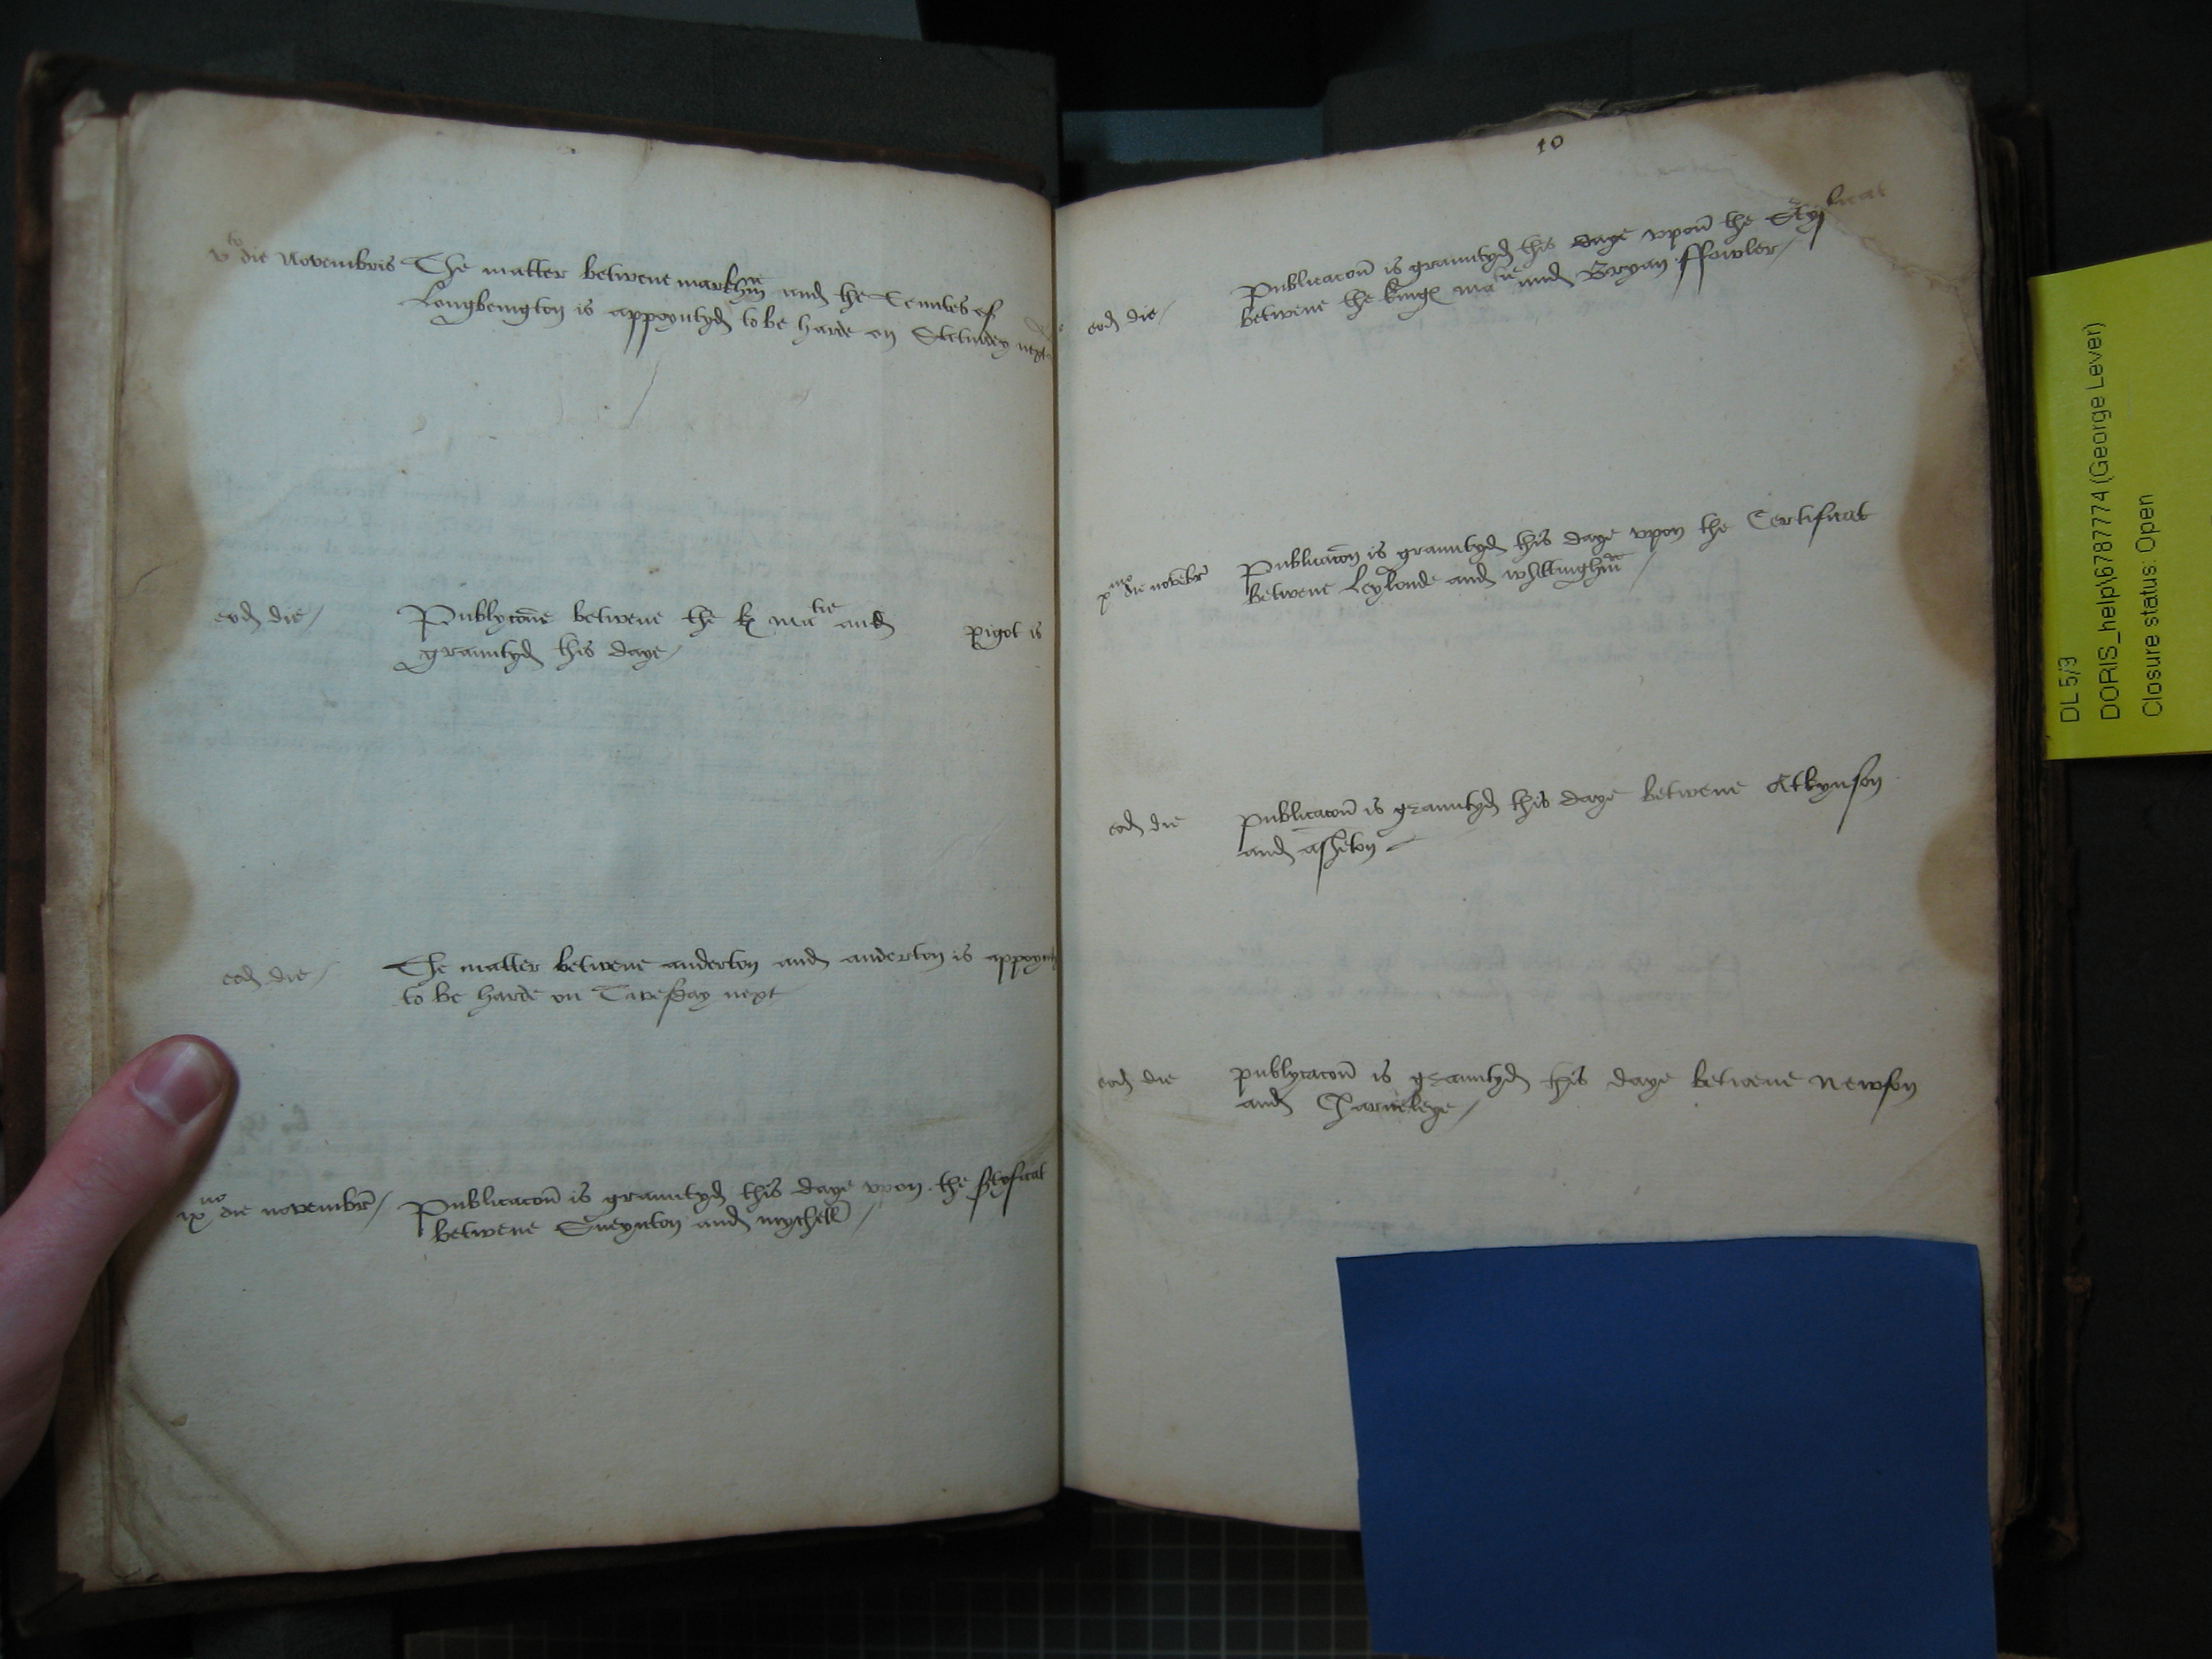 vto die Novembris The matter betwene markhm and the Tenntes of
Longbenigton is appoyntyd to be harde on Saturdey next
eod die/ Publycone betwene the k matie and pigot is
grauntyd this daye/
eod die/ The matter betwene anderton and anderton is appoynt
to be harde on Twesday next
ixno die novembr/ Publicacon is grauntyd this daye upon the Styficat
betwene Queynton and mychell/
10
eod die/ Publicacon is grauntyd this daye upon the
betwene the kinges matie and Bryan ffowler/
xmo die novebr Publicacon is grauntyd this daye upon the Certificat
betwene Leylonde and whittinghm
eod die publicacon is grauntyd this daye betwene Atkynson
and assheton
eod die publycacon is grauntyd this daye betwene Newson
and Charneleye/
DL 5/9
DORIS_help\6787774 (George Lever)
Closure status: Open